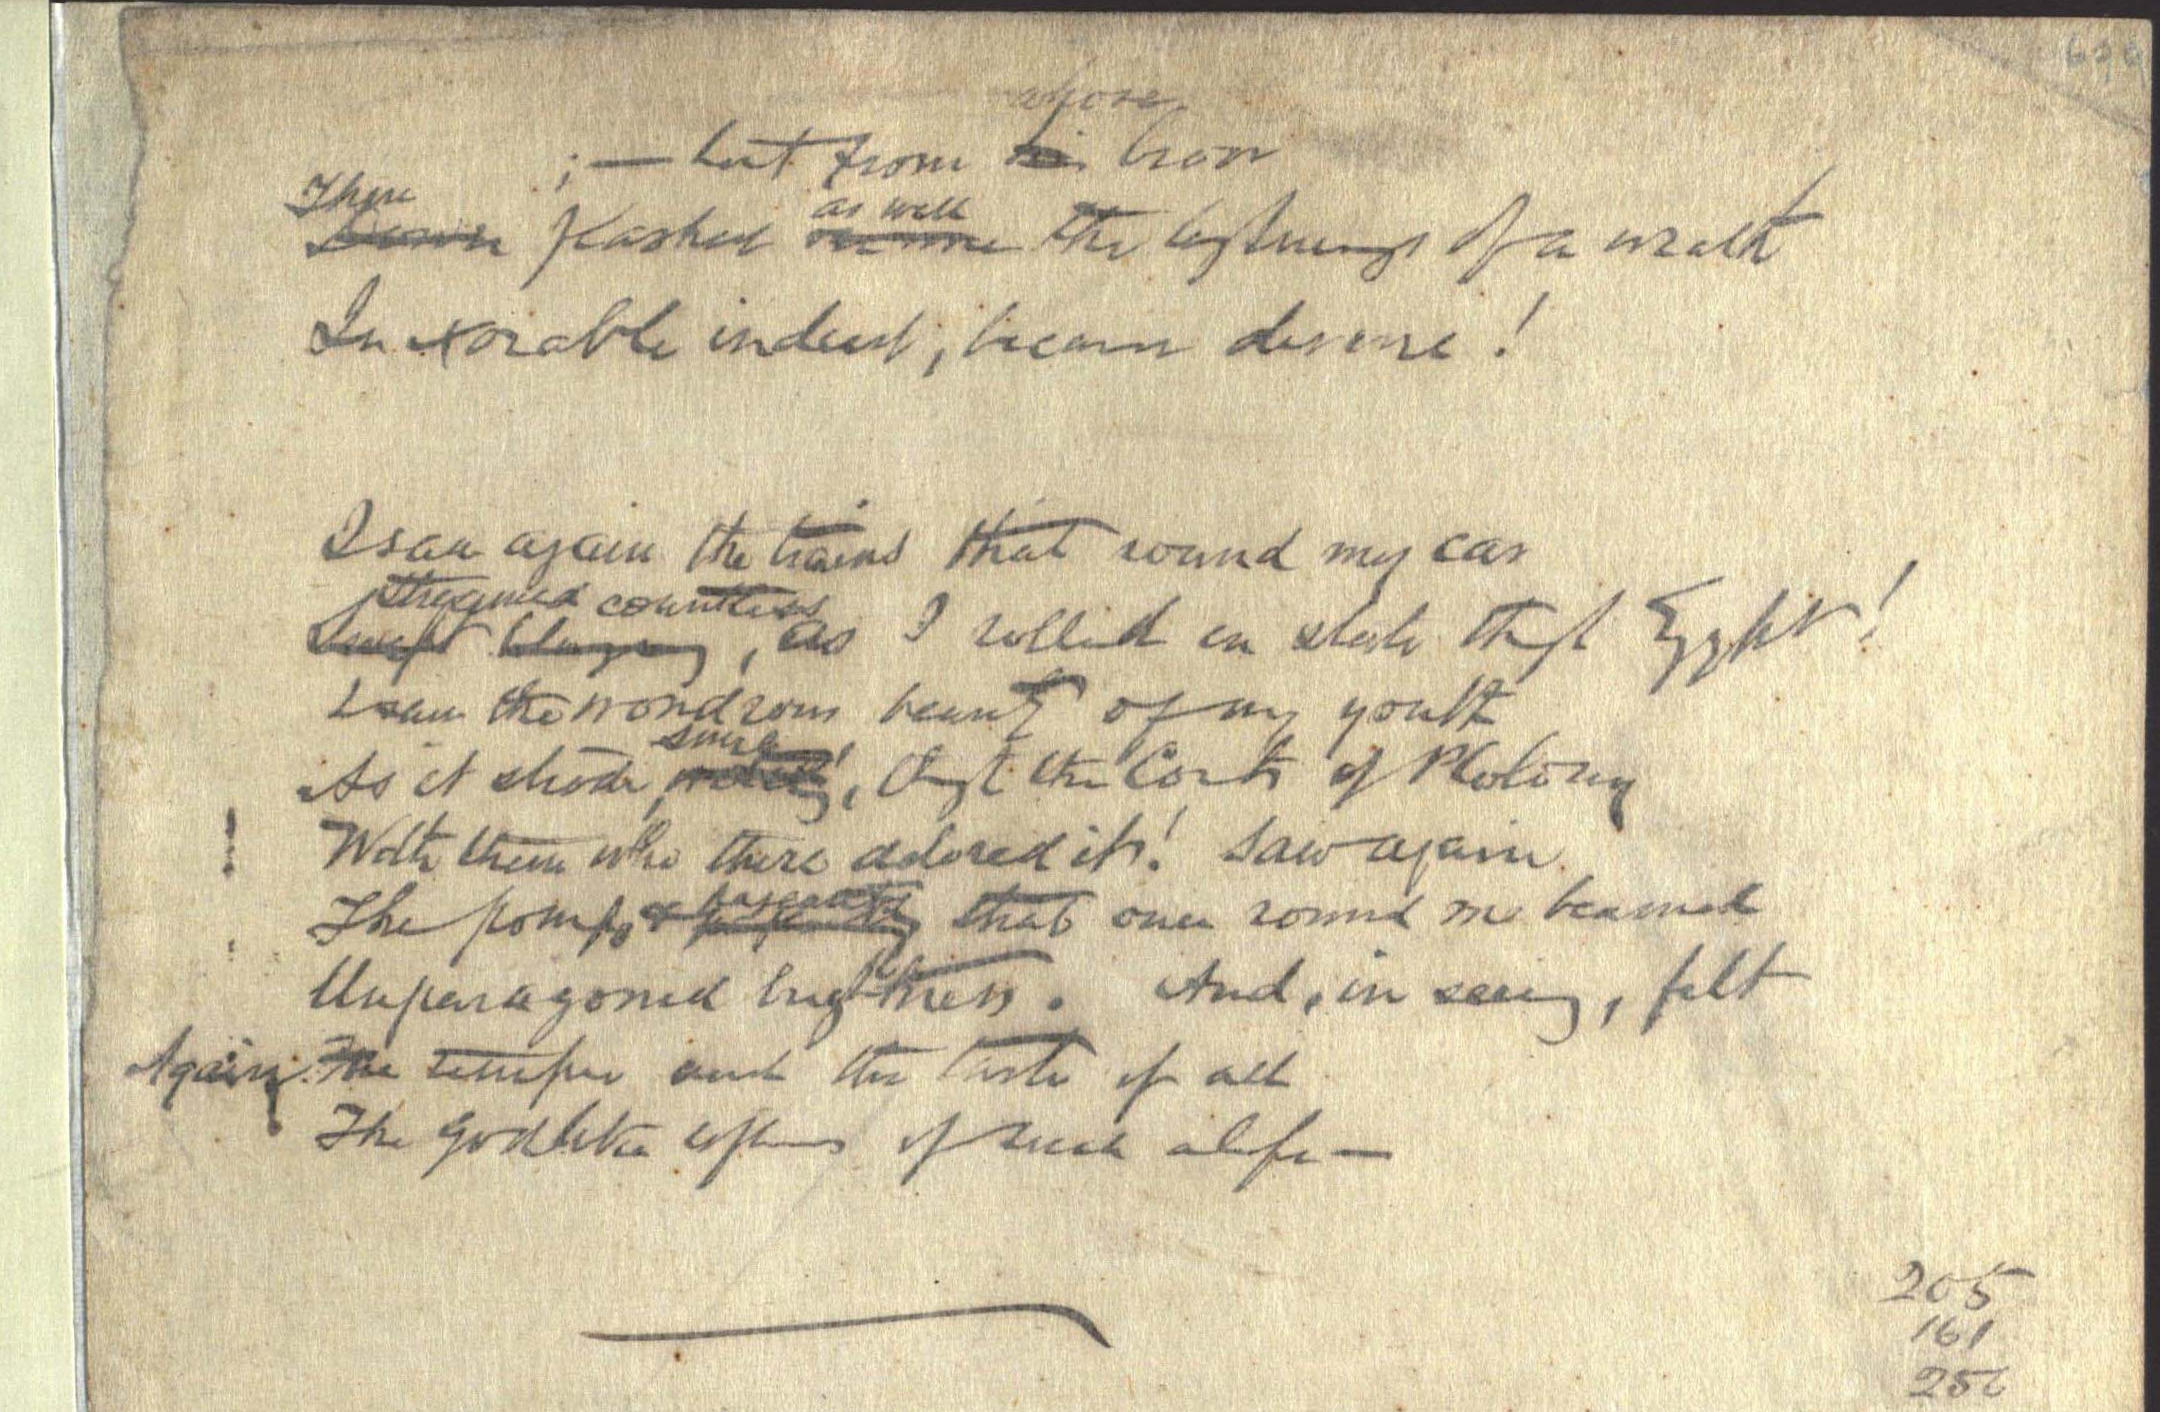 above
;— but from his brow
There as well
Down flashed the lightnings of a wrath
Inexorable indeed, because divine!
I saw again the trains that round my car
streamed countless
Swept blazing, as I rolled in state thro' Egypt!
I saw the wondrous beauty of my youth
As it strode, thro' the Courts of Ptolemy
With them who there adored it! Saw again
pageants
The pomps & that once round me beamed
Unparagoned brightness. And, in seeing, felt
Again. The temper and the taste of all
The Godlike of such a life—
205
161